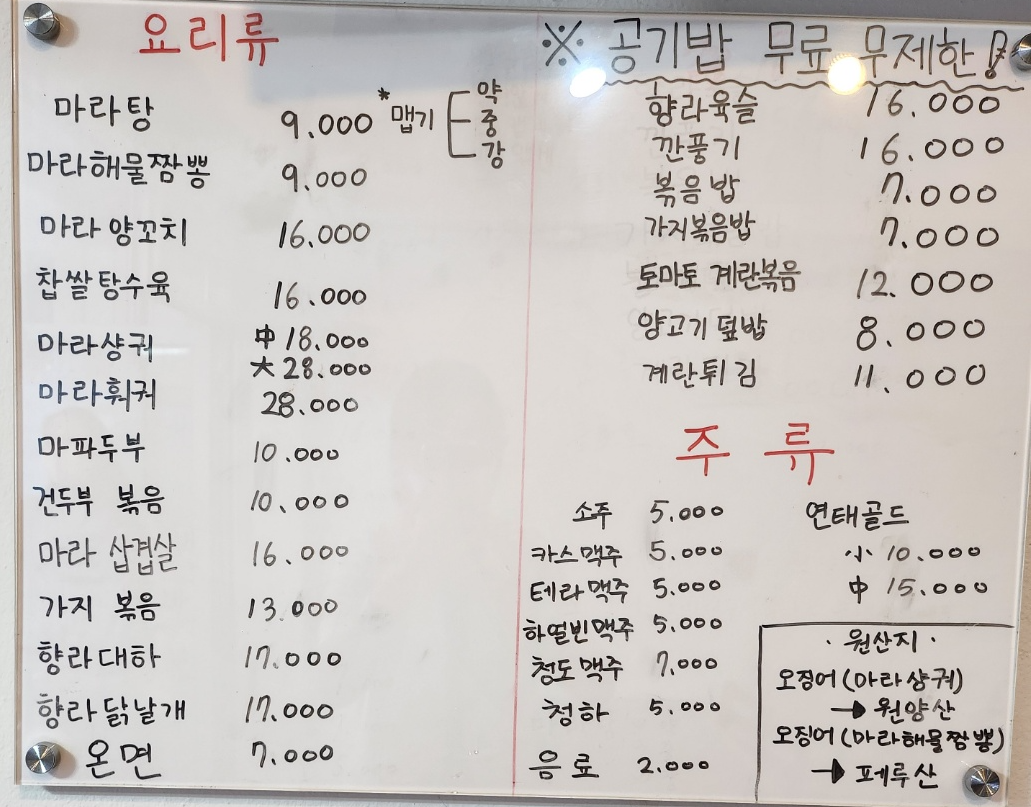 요리류
마라탕 9.000 *맵기 약 중 강
마라해물짬뽕 9.000
마라 양꼬치 16.000
찹쌀탕수육 16.000
마라샹궈 中 18.000
大 28.000
마라훠궈 28.000
마파두부 10.000
건두부 볶음 10.000
마라 삼겹살 16.000
가지 볶음 13.000
향라대하 17.000
향라닭날개 17.000
온면 7.000
※ 공기밥 무료 무제한!
향라육슬 16.000
깐풍기 16.000
볶음밥 7.000
가지볶음밥 7.000
토마토 계란볶음 12.000
양고기 덮밥 8.000
계란튀김 11.000
주류
소주 5.000
카스맥주 5.000
테라맥주 5.000
하얼빈맥주 5.000
청도맥주 7.000
청하 5.000
음료 2.000
연태골드
小 10.000
中 15.000
· 원산지 ·
오징어(마라샹궈)
→ 원양산
오징어(마라해물짬뽕)
→ 페루산